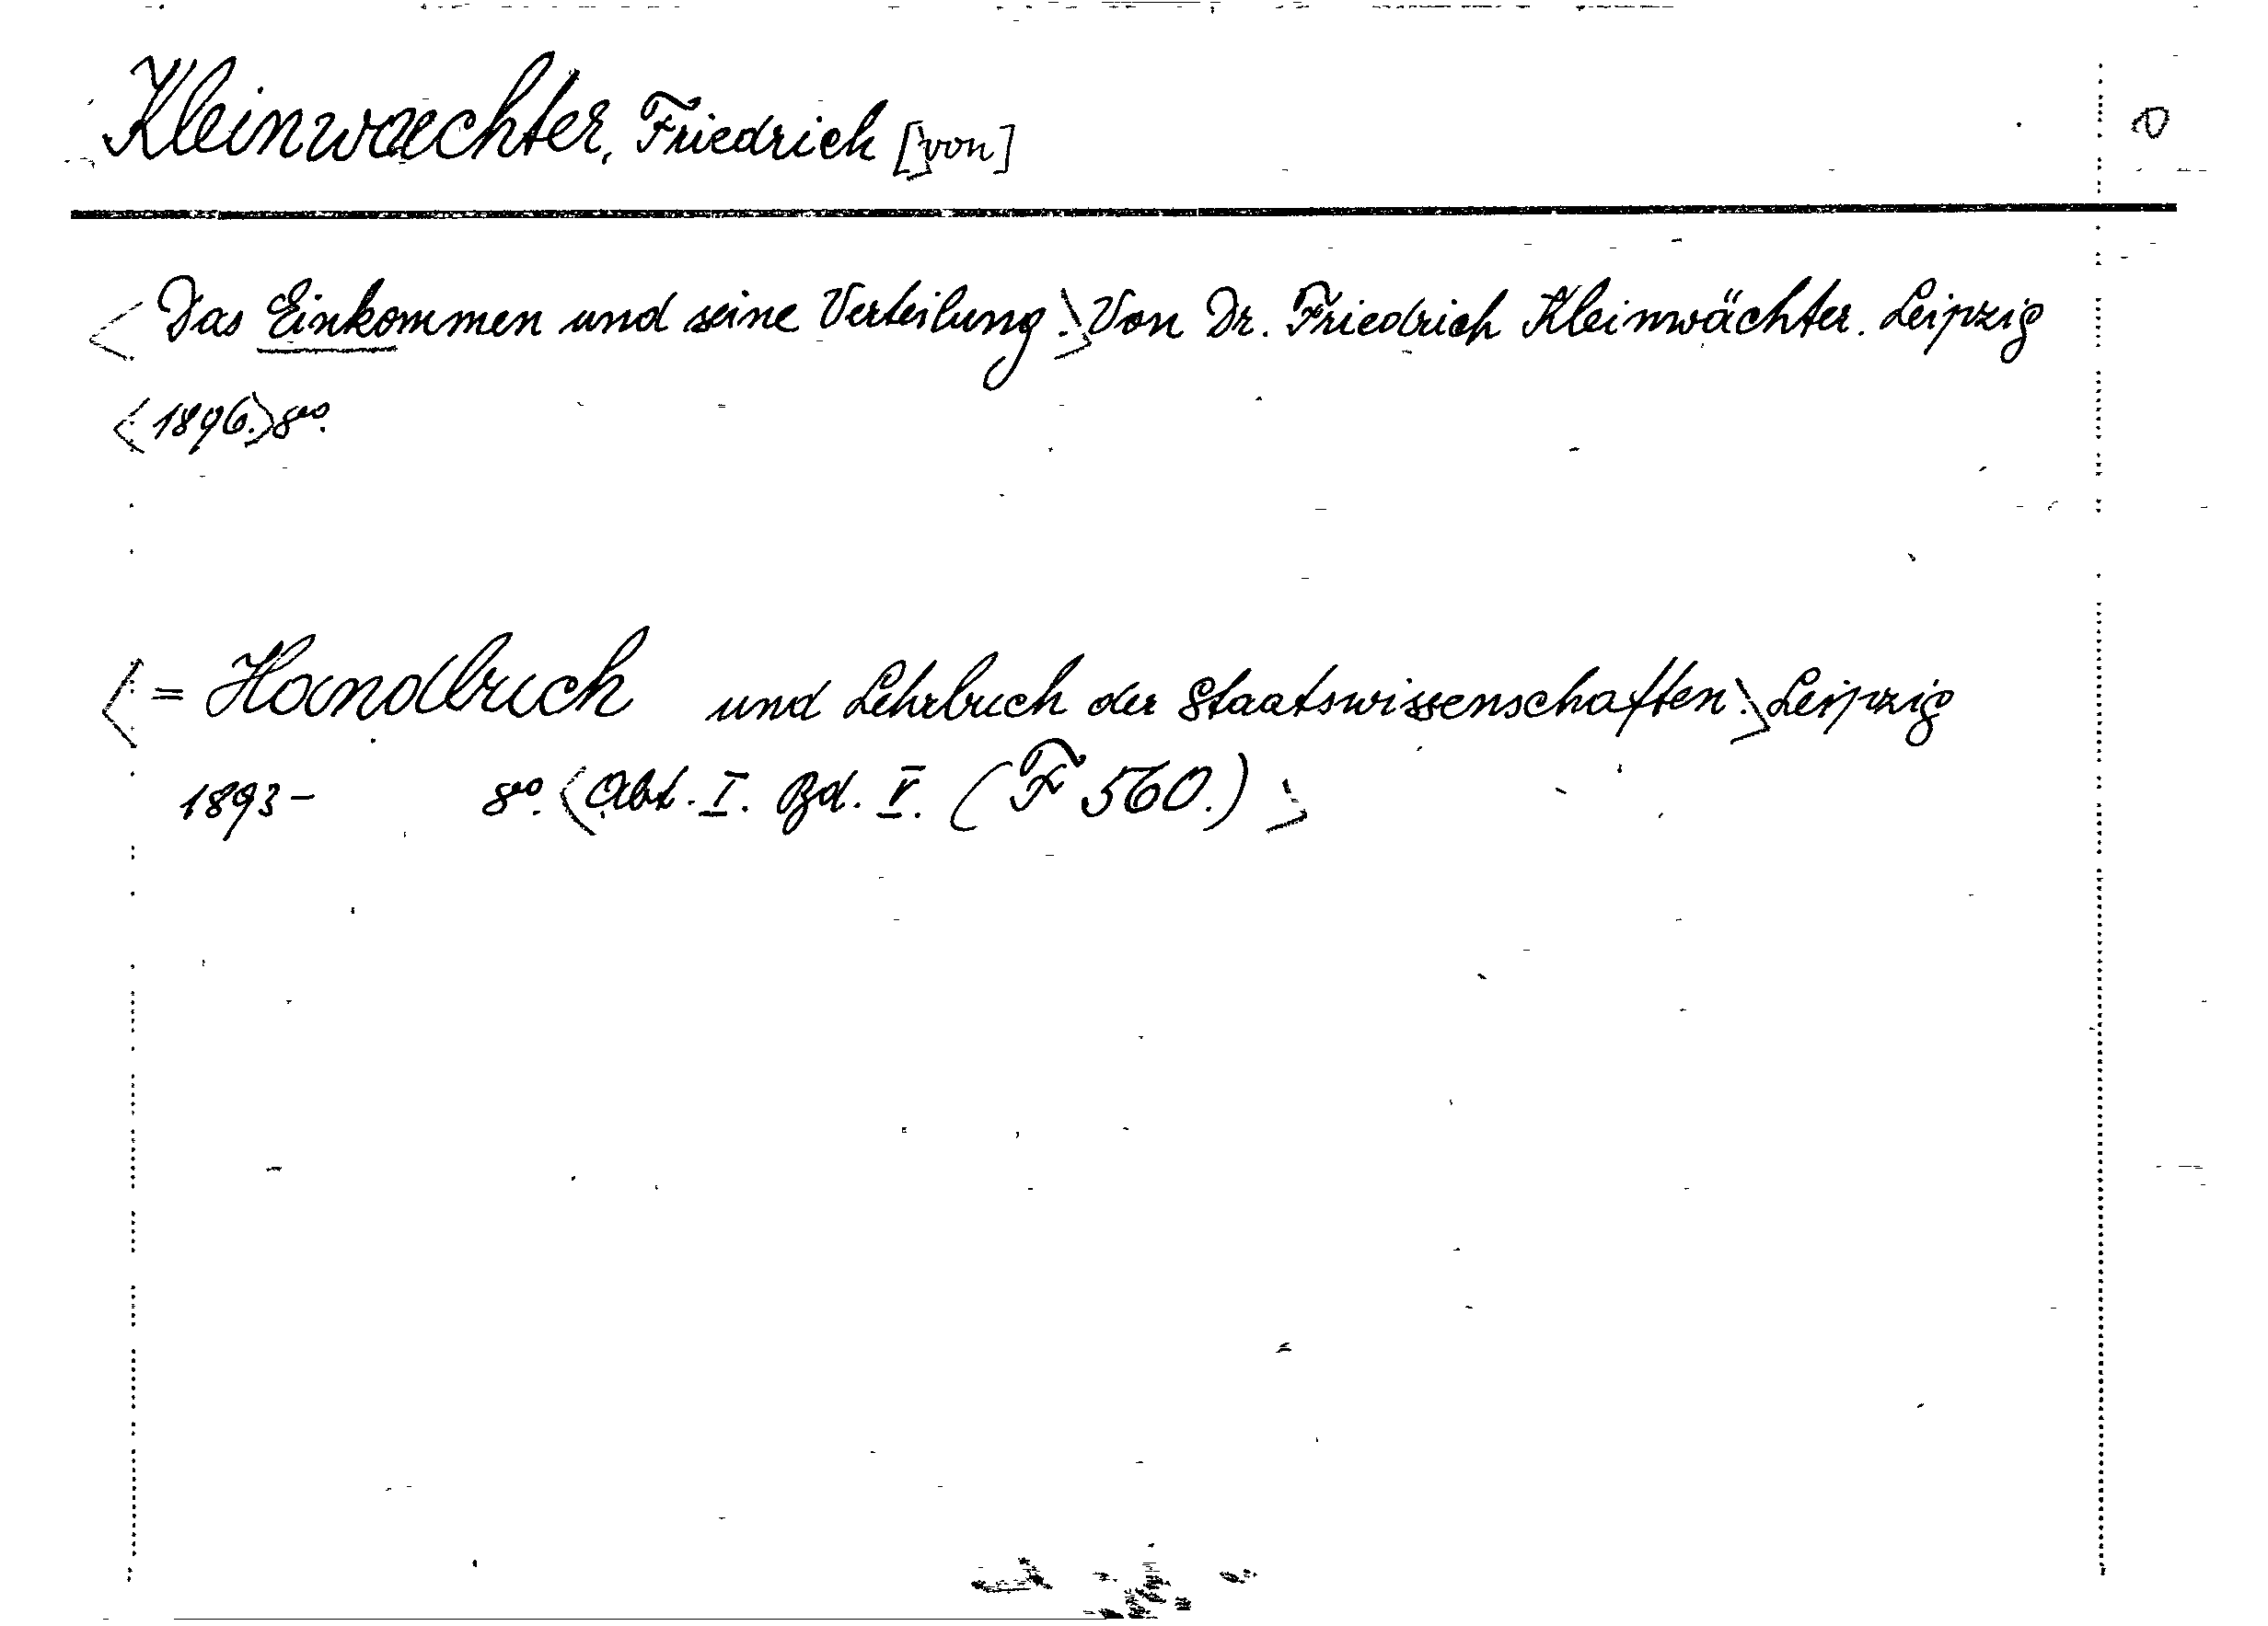 Kleinwaechter, Friedrich [von]
<Das Einkommen und seine Verteilung.> Von Dr. Friedrich Kleinwächter. Leipzig
<1896.> 8vo.
<= Handbuch und Lehrbuch der Staatswissenschaften.> Leipzig
1893- 8vo. <Abt. I. Bd. V. (F 560.)>